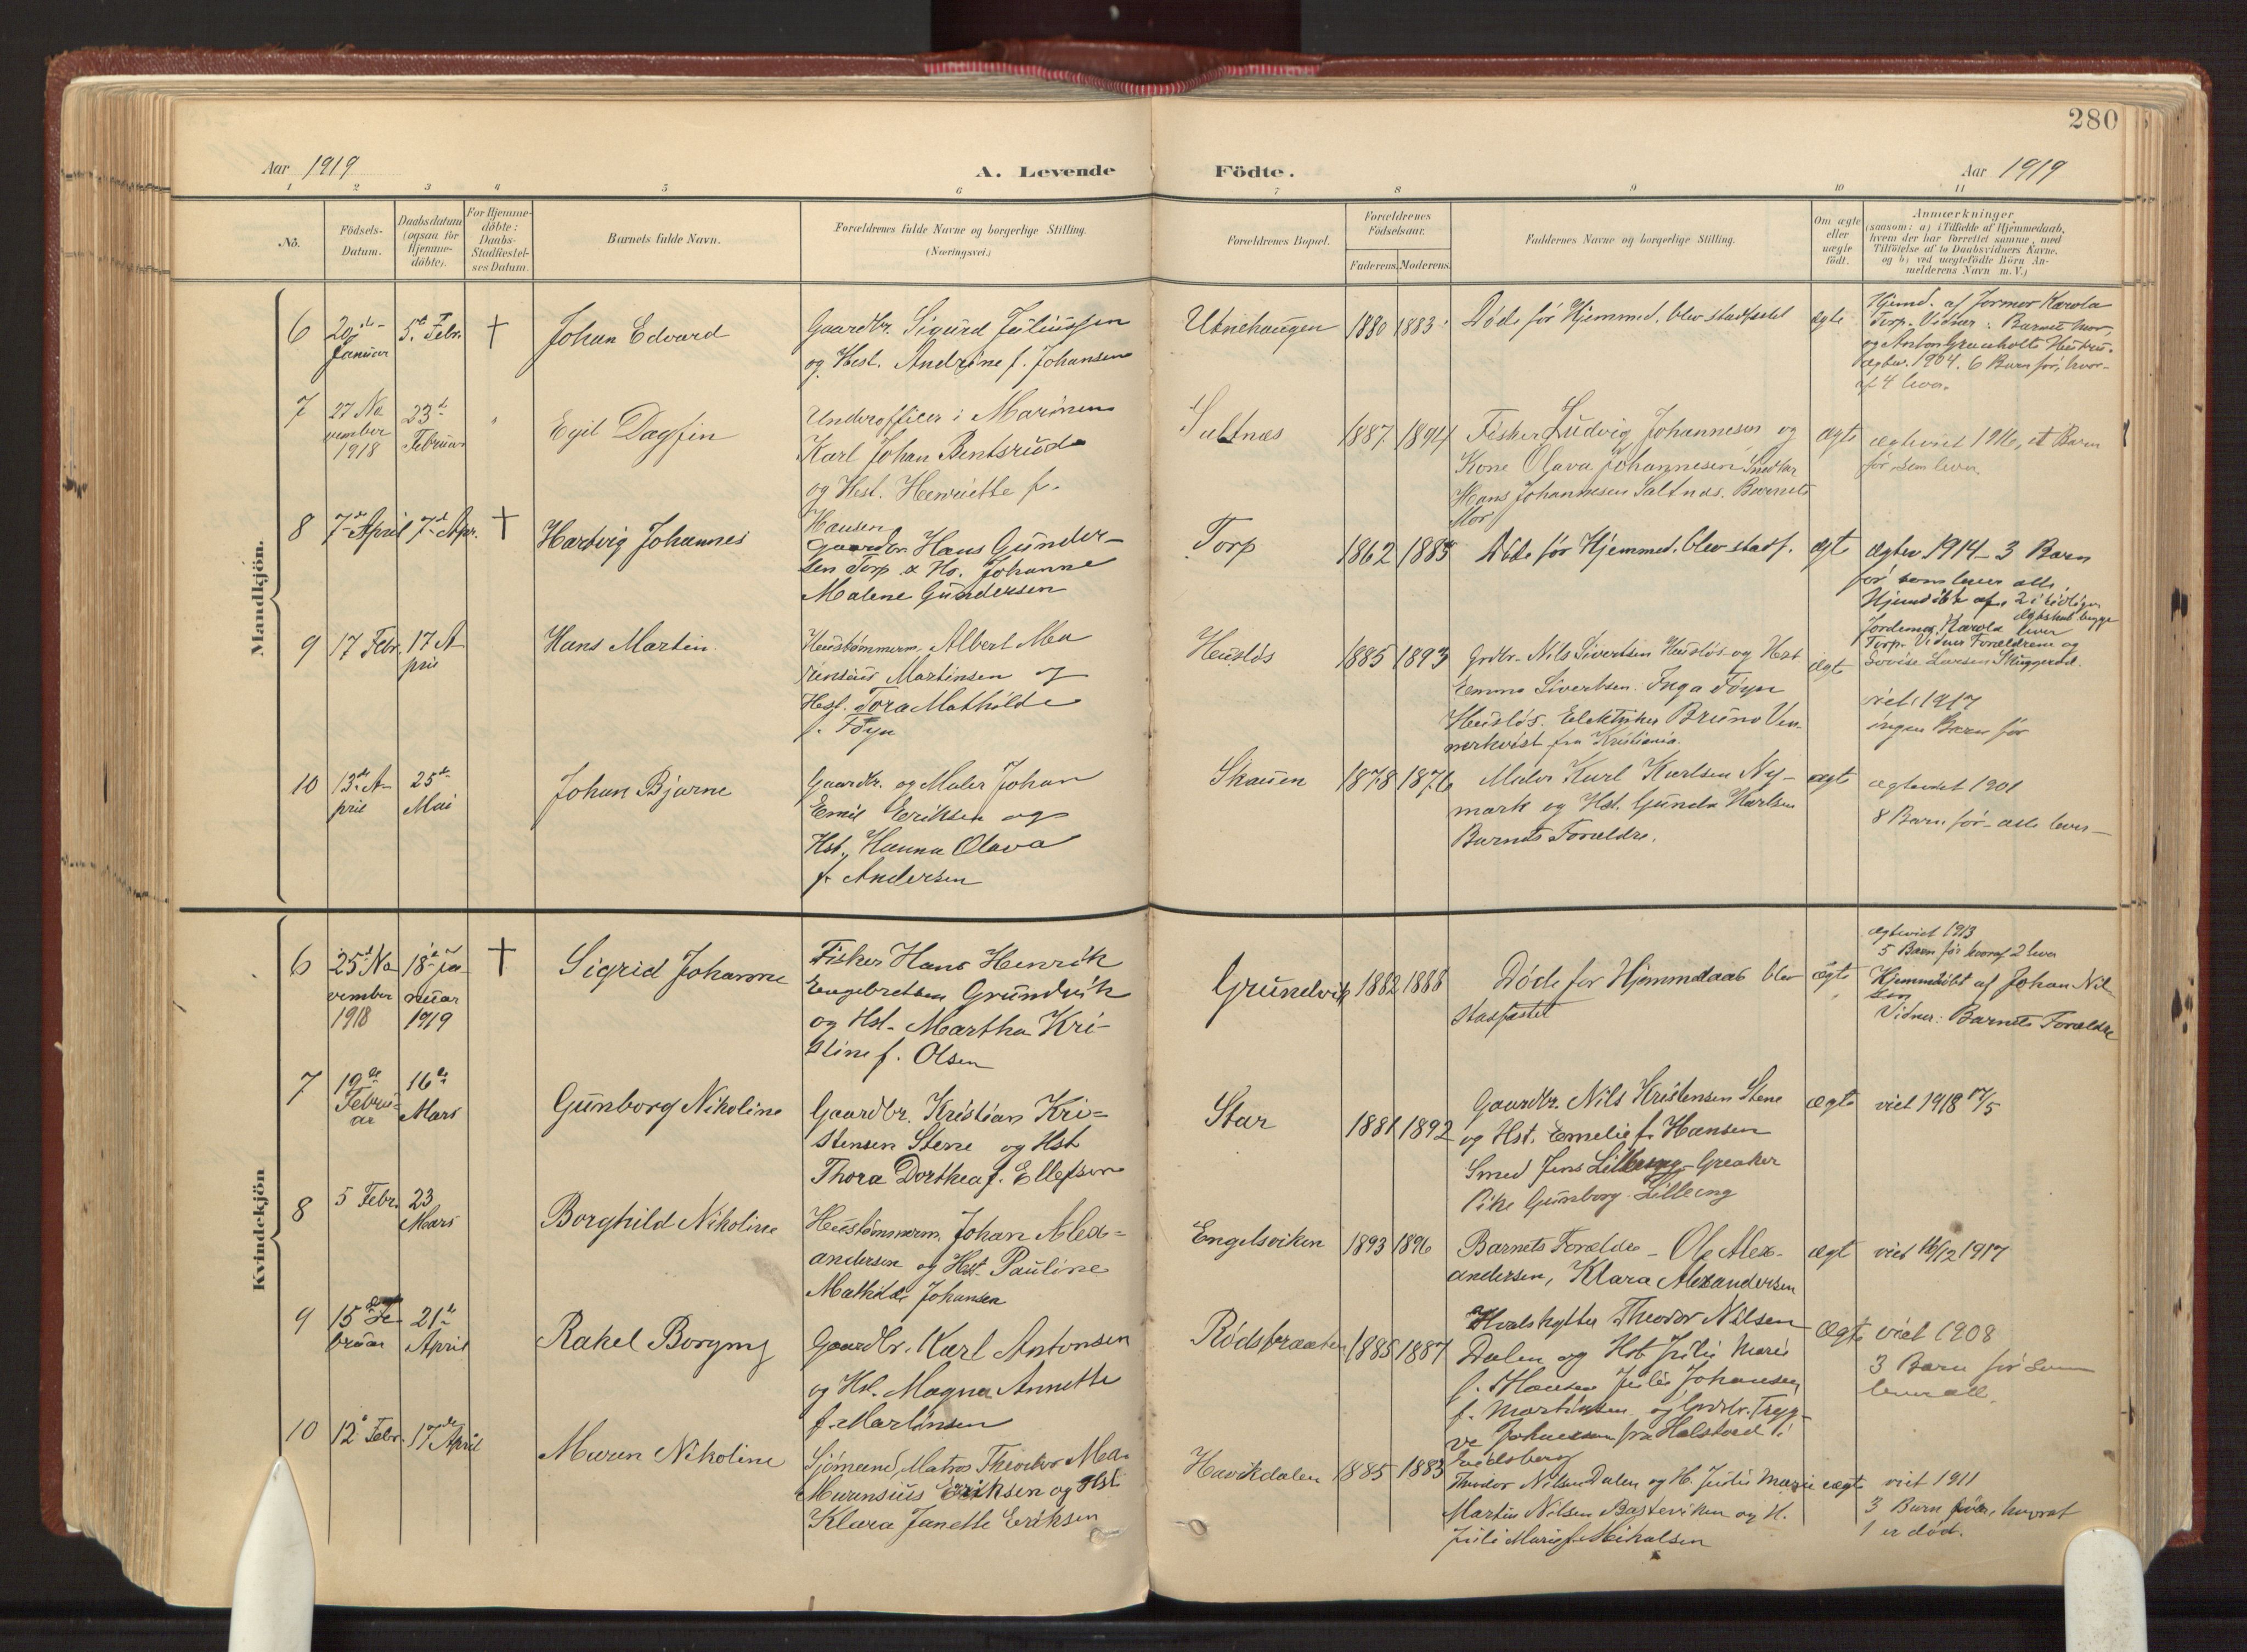 280
Aar 1919
A. Levende
Födte.
Aar 1919
1 2 3 4 5 6 7 8 9 10 11
No.
Födsels-
Datum.
Daabsdatum
(ogsaa for
Hjemme-
döbte).
For Hjemme-
döbte:
Daabs-
Stadfæstel-
ses Datum.
Barnets fulde Navn.
Forældrenes fulde Navne og borgerlige Stilling.
(Næringsvei.)
Forældrenes Bopæl.
Forældrenes
Födselsaar.
Faderens. Moderens.
Faddernes Navne og borgerlige Stilling.
Om ægte
eller
uægte
födt.
Anmærkninger
(saasom: a) i Tilfælde af Hjemmedaab,
hvem der har forrettet samme, med
Tilföielse af to Daabsvidners Navne,
og b) ved uægtefödte Börn An-
melderens Navn m. V.)
Mandkjön.
6
20de
Januar
5te Febr.
†
Johan Edvard
Gaardbr. Sigurd Juliussen
og Hest. Andrine f. Johansen
Utnehaugen
1880 1883
Døde før Hjemmed. blev stadfestet
ægte
Hjemd. af Jormor Karola
Torp. Vidner: Barnets Mor,
og Anton Grønholts Hustru.
1904. 6 Barn før, hvor-
af 4 lever.
7
27 No
vember
1918
23de
Februar
"
Egil Dagfin
Underofficer i Marinen
Karl Johan Bentsrud
og Hest. Henriette f.
Hansen
Saltnæs
1887 1894
Fisker Ludvig Johannesen og
Kone Olava Johannesen Snedker
Hans Johannesen Saltnæs. Barnets
Mor
ægte
ægteviet 1916, et Barn
før som lever
8
7de April
7de Apr.
†
Hartvig Johannes
Gaardbr. Hans Gunder-
sen Torp & Ho. Johanne
Malene Gundersen
Torp
1862 1885
Døde før Hjemmed. blev stadf.
ægte
Ægtev 1914 - 3 Barn
før som lever alle.
Hjemdøbt af 2 i tidligere
ægteskab begge
Jordemor Karola lever
Torp. Vidner Forældrene og
Lovise Larsen Skuggerud.
9
17 Febr.
17 A
pril
Hans Martin.
Hustømmerm. Albert Ma
rensius Martinsen og
Hest. Tora Mathilde
f. Føyn
Husløs
1885 1893
Grdbr. Nils Sivertsen Husløs og Hest
Emma Sivertsen. Inga Føyn
Husløs. Elektriker Bruno Ven-
nerkvist fra Kristiania.
ægte
viet 1917
ingen Barn før
10
13de A-
pril
25de
Mai
Johan Bjarne
Gaardbr. og Maler Johan
Emil Eriksen og
Hst. Hanna Olava
f. Andersen
Skauen
1878 1876
Maler Karl Karlsen Ny-
mark og Hst. Gunda Karlsen
Barnets Forældre.
ægte
ægteviet 1901
8 Barn før - alle lever -
Kvindekjön
6
25de No
vember
1918
18de Ja-
nuar
1919
†
Sigrid Johanne
Fisker Hans Henrik
Engebretsen Grundvik
og Hst. Martha Kri-
stine f. Olsen
Grundvik
1882 1888
Døde før Hjemmedaab blev
stadfæstet
ægte
ægteviet 1913
5 Barn før hvoraf 2 lever
Hjemmedøbt af Johan Nil
sen
Vidner: Barnets Forældre
7
19de
Febru-
ar
16de
Mars
Gunborg Nikoline
Gaardbr. Kristian Kri-
stensen Stene og Hst
Thora Dorthea f. Ellefsen
Star
1881 1892
Gaardbr. Nils Kristensen Stene
og Hst. Emelie f. Hansen
Smed Jens Lilleeng - Greaker
Pike Gunborg Lilleeng
ægte
viet 1918 17/5
8
5 Febr.
23
Mars
Borghild Nikoline
Hustømmerm. Johan Alex-
andersen og Hst. Pauline
Mathilde Johansen
Engelsviken
1893 1896
Barnets Forældre - Ole Alex-
andersen, Klara Alexandersen
ægte
viet 16/12 1917
9
15de Fe-
bruar
21de
April
Rakel Borgny
Gaardbr. Karl Antonsen
og Hst. Magna Annette
f. Martinsen
Rødsbraaten
1885 1887
Hvalskytter Theodor Nilsen
Dalen og Hst Julie Marie
f. Hansen Julie Johansen
f. Martinsen og Grdbr. Tryg-
ve Johansen fra Halstvedt i
Tridsberg
ægte
viet 1908
3 Barn før som
lever alle.
10
12te Febr.
17de April
Maren Nikoline
Sjømand, Matros Theodor Ma-
Marensius Eriksen og Hst
Klara Janette Eriksen
Havikdalen
1885 1883
Theodor Nilsen Dalen og H. Julie Marie
Martin Nilsen Basteviken og H.
Julie Marie f. Mikalsen
ægte
viet 1911
3 Barn før, hvoraf
1 er død.